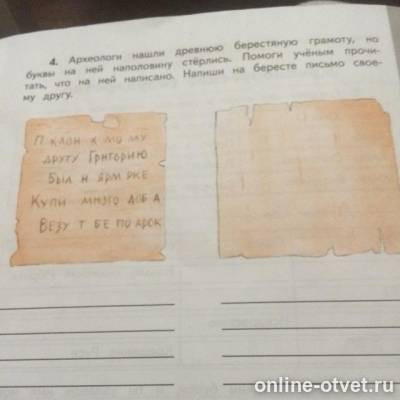 4. Археологи нашли древнюю берестяную грамоту, но
буквы на ней наполовину стёрлись. Помоги учёным прочи-
тать, что на ней написано. Напиши на бересте письмо свое-
му другу.
П клон к мо му
другу Григорию
Был н ярм рке
Купи много доб а
Везу т бе по арок
online-otvet.ru